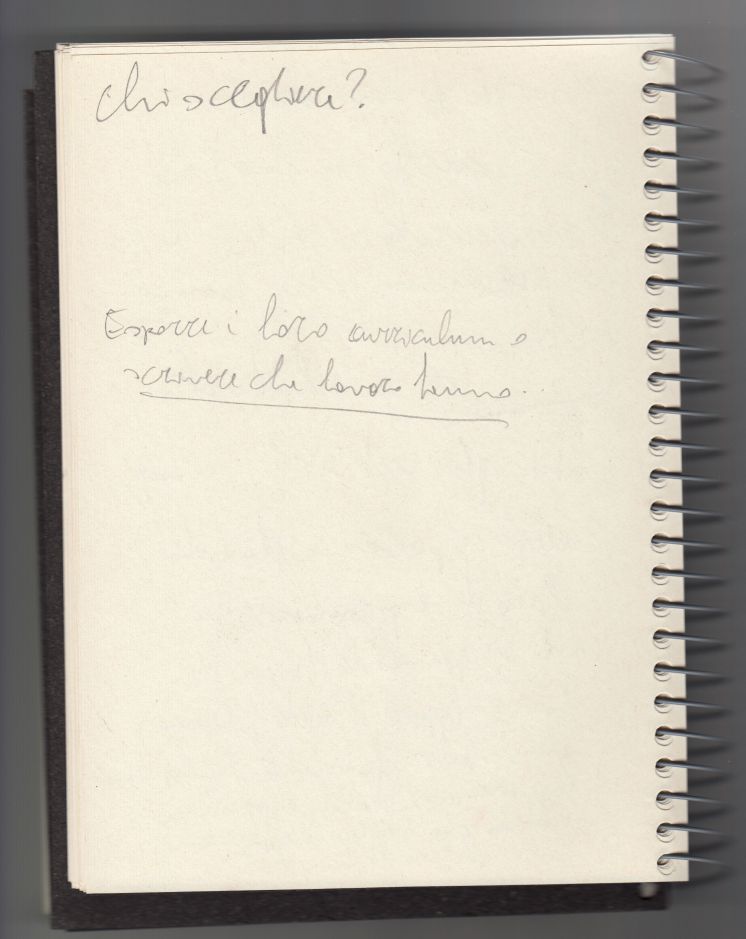 Chi scegliere?
Esporre i loro curriculum o
scrivere che lavoro fanno.